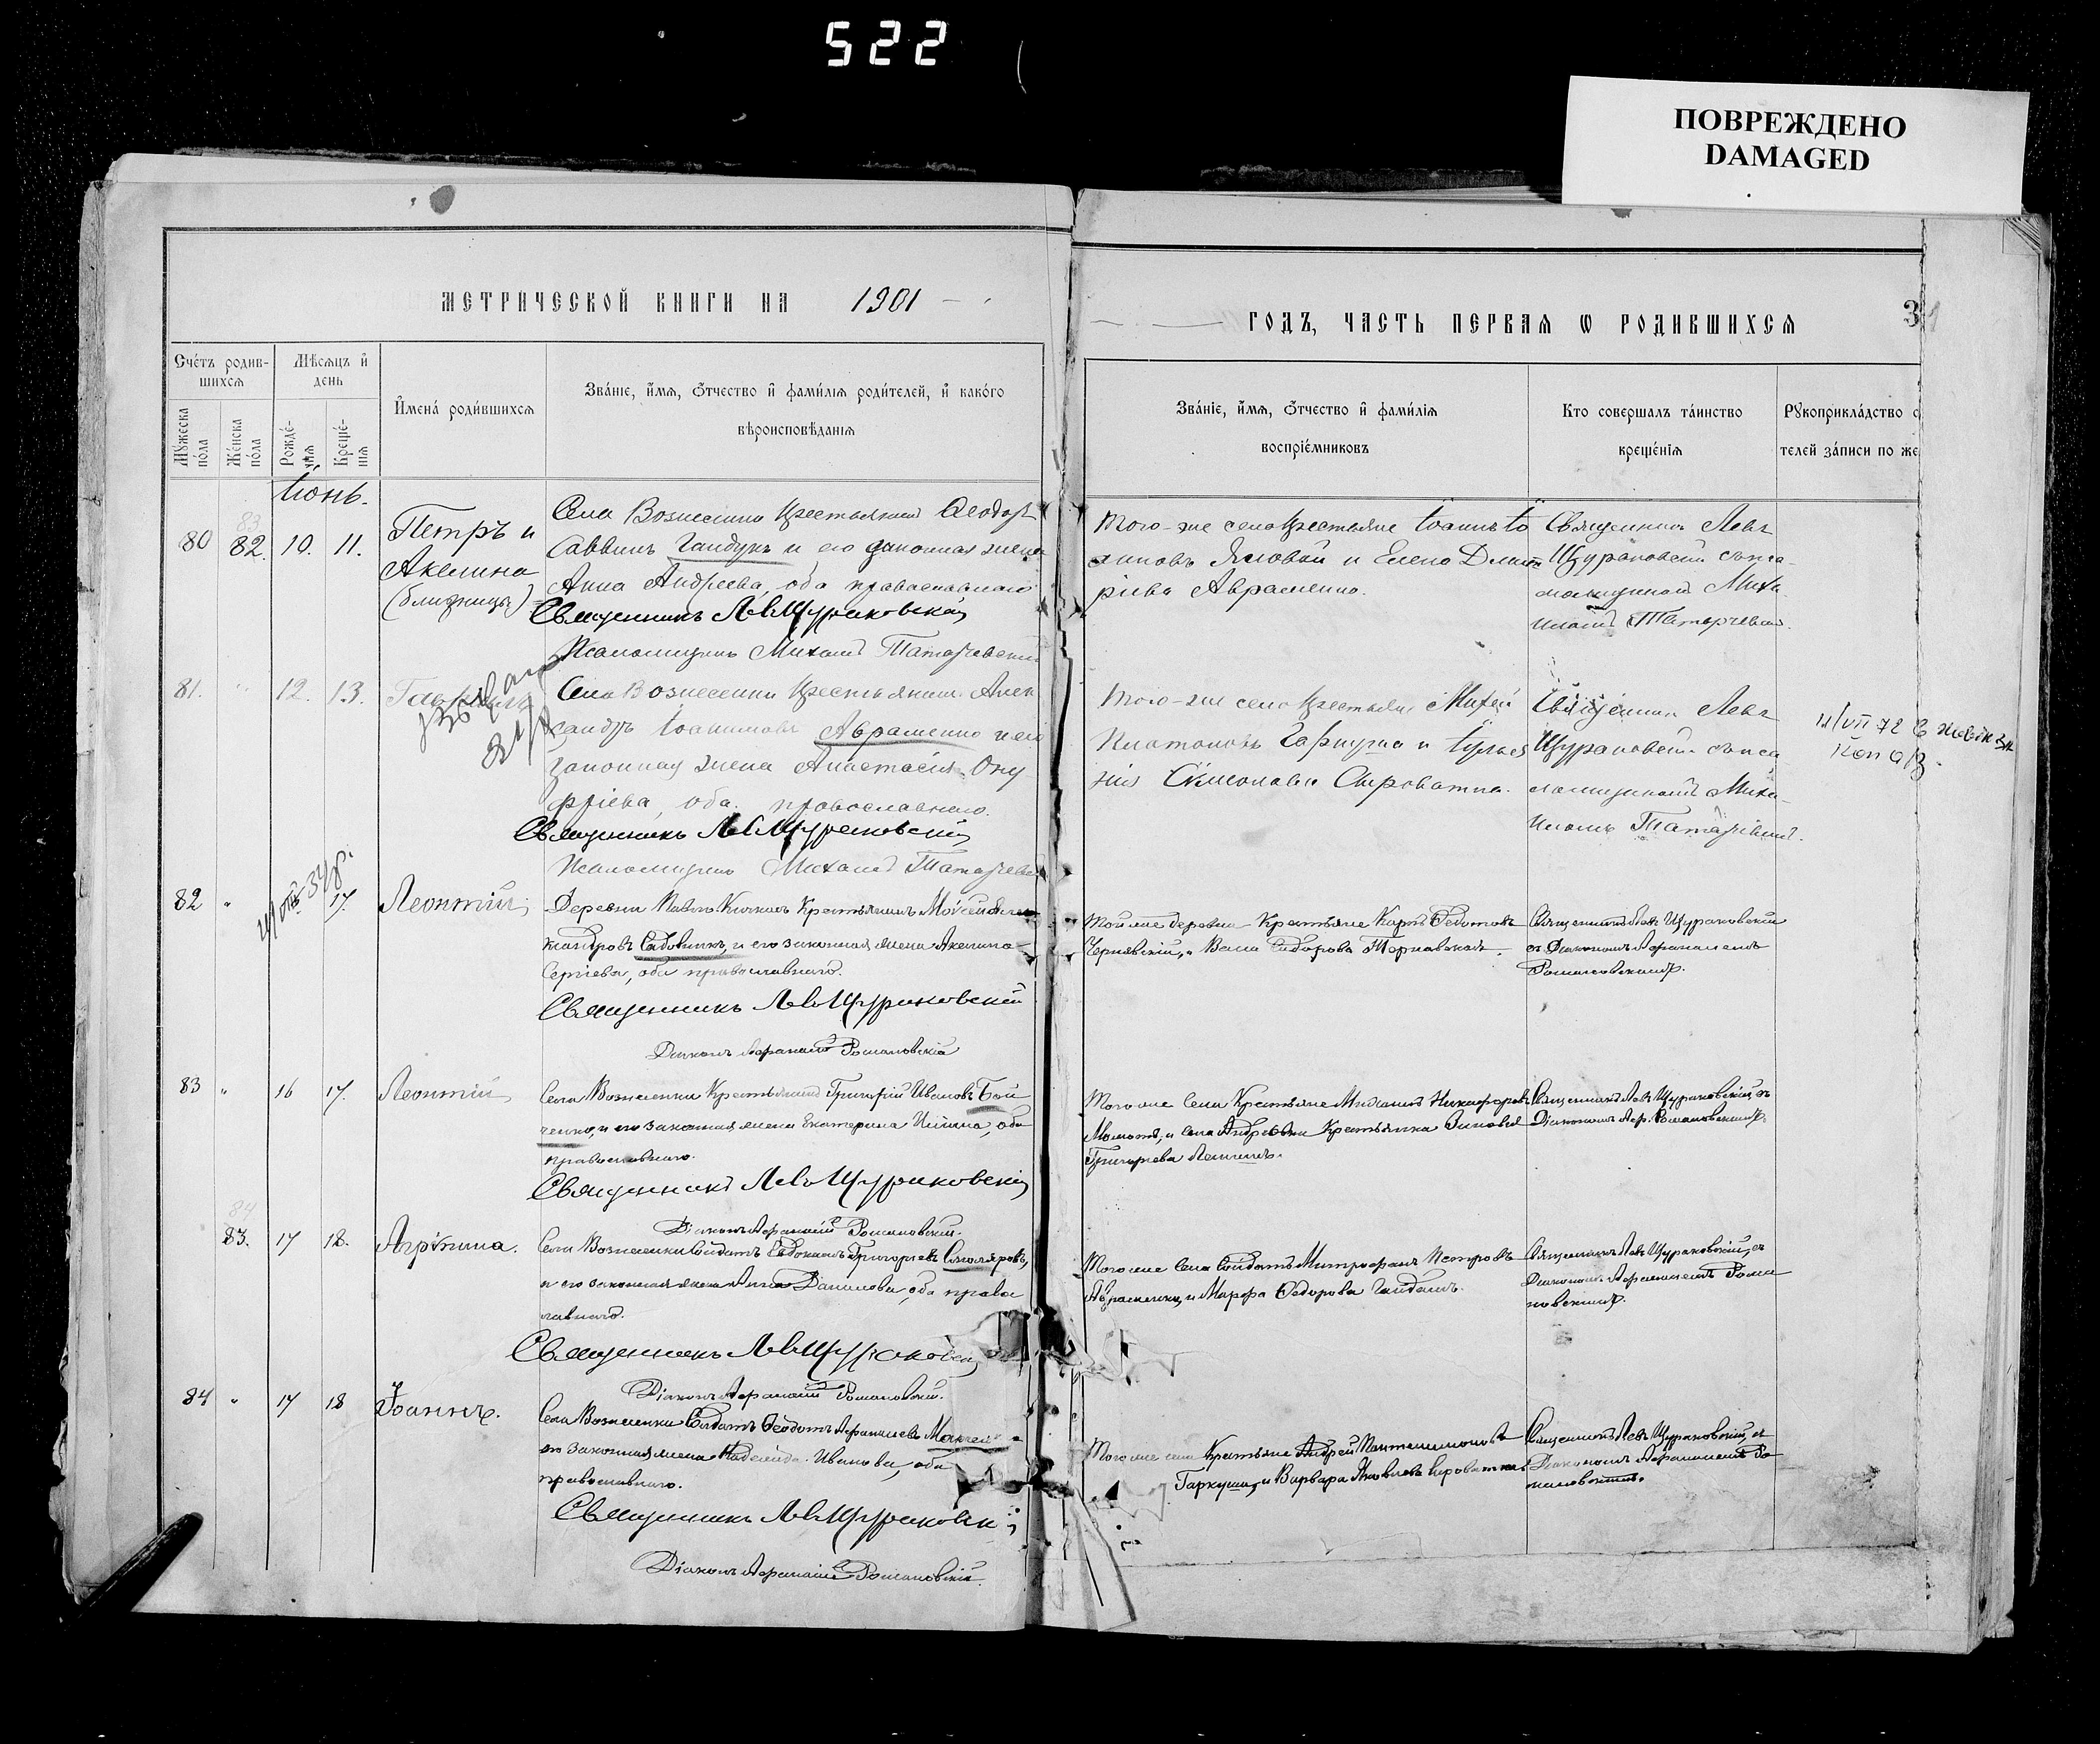 522
ПОВРЕЖДЕНО
DAMAGED
МЕТРИЧЕСКОЙ КНИГИ НА 1901
ГОДЪ, ЧАСТЬ ПЕРВАЯ Ѡ РОДИВШИХСЯ
3
Счетъ родив-
шихся
Мѣсяцъ и
день
Мужеска
пола
Женска
пола
Рожде-
нія
Креще-
нія
Имена родившихся
Званіе, имя, отчество и фамилія родителей, и какого
вѣроисповѣданія
Званіе, имя, отчество и фамилія
воспріемниковъ
Кто совершалъ таинство
крещенія
Рукоприкладство с
телей записи по же
Іюнь.
80 83 82. 10. 11.
Петръ и
Акелина
(близнецы)
Села Вознесенки крестьянинъ Ѳеодоръ
Саввинъ Гандукъ и его законная жена
Анна Андреева, оба православнаго
Священникъ Левъ Щураковскій
Псаломщикъ Михаилъ
Того-же села крестьяне Іоаннъ Іо
Яловой и Елена Димит
ріева Авраменко.
Священникъ Левъ
Щураковскій съ пса-
ломщикомъ Миха-
иломъ
81. " 12. 13. Гавріилъ
Села Вознесенки крестьянинъ Алек
сандръ Іоакимовъ Авраменко и его
законная жена Анастасія Ону
фріева, оба православнаго.
Священникъ Левъ Щураковскій
Псаломщикъ Михаилъ
Того-же села крестьяне Михей
Платоновъ Гаркуша и Іулія
Сыроватка.
Священникъ Левъ
Щураковскій съ пса
ломщикомъ Миха-
иломъ
11/VII 72
82 " 17. Леонтій
Деревни Крестьянинъ
Садовникъ, и его законная жена Акелина
Сергіева, оба православнаго.
Священникъ Левъ Щураковскій
Діаконъ Аѳанасій Романовскій
Той же деревни Крестьяне Карпъ Ѳедотовъ
Чернявскій, и Сидорова Тернавская.
Священникъ Левъ Щураковскій
съ Діакономъ Аѳанасіемъ
Романовскимъ.
83 " 16 17. Леонтій
Села Вознесенки Крестьянинъ Григорій Ивановъ Бой
ченко, и его законная жена Екатерина Ильина, оба
православнаго.
Священникъ Левъ Щураковскій
Діаконъ Аѳанасій Романовскій.
Того же села Крестьяне Михаилъ Никифоровъ
и села Андреевки Крестьянка Зиновія
Григорьева
Священникъ Левъ Щураковскій съ
Діакономъ Аѳ. Романовскимъ.
84
83. 17 18. Агрипина.
Села Вознесенки Солдатъ Евдокимъ Григорьевъ Столяровъ,
и его законная жена Анна Данилова, оба право
славнаго.
Священникъ Левъ Щураковскій
Діаконъ Аѳанасій Романовскій.
Того же села Солдатъ Митрофанъ Петровъ
Авраменко, и Марѳа Ѳедорова
Священникъ Левъ Щураковскій, съ
Діакономъ Аѳанасіемъ Рома
новскимъ.
84 " 17 18 Іоаннъ.
Села Вознесенки Солдатъ Ѳеодотъ Аѳанасіевъ
его законная жена Надежда Иванова, оба
православнаго.
Священникъ Левъ Щураковскій
Діаконъ Аѳанасій Романовскій.
Того же села Крестьяне Андрей Пантелимоновъ
Гаркуша, и Варвара Яковлева Сироватка
Священникъ Левъ Щураковскій, съ
Діакономъ Аѳанасіемъ Ро
мановскимъ.